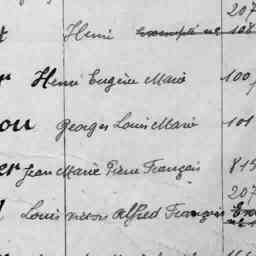 207
Henri exempté n° 108
r Henri Eugène Marie 100
ou Georges Louis Marie 101
er Jean Marie Pierre François 815
207
Louis Victor Alfred François Exe